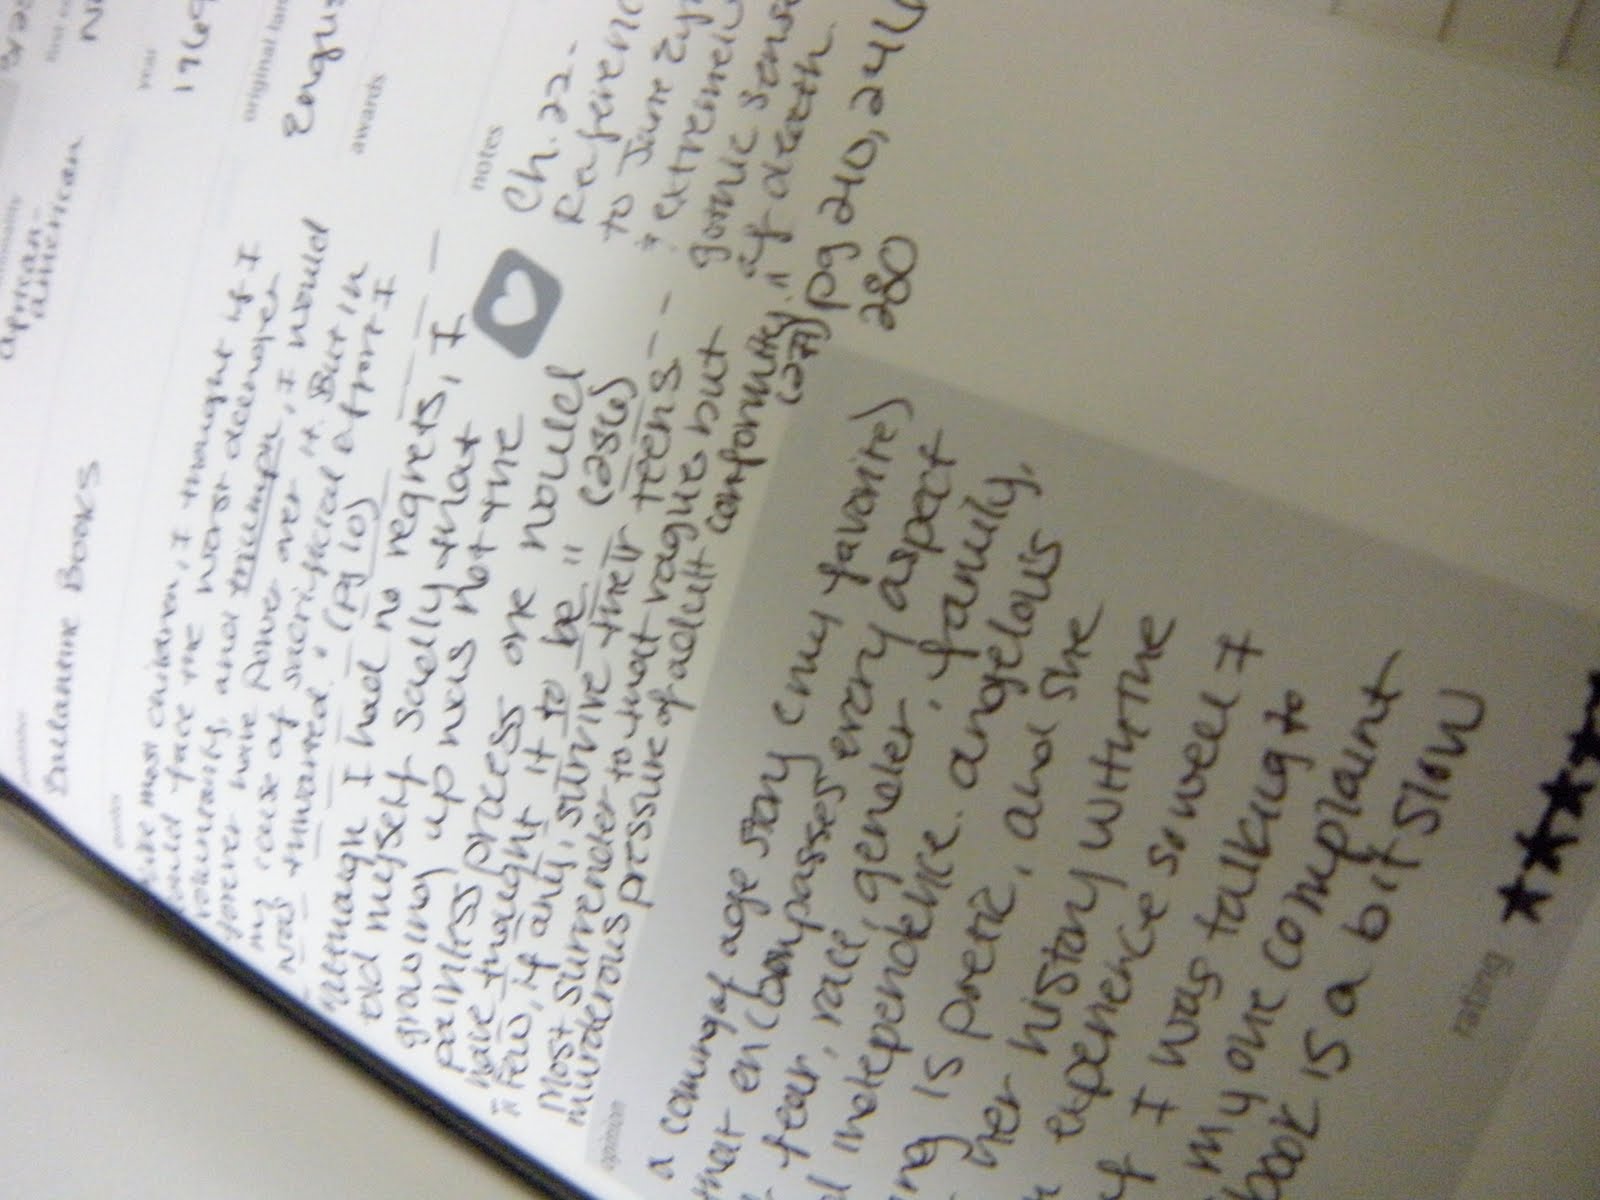 african-
american
year
1969
original lan
Englis
awards
Ballantine Books
like most children, I thought if I
could face the worst danger
voluntarily, and triumph, I would
forever have power over it. But in
my case of sacrificial effort I
was thwarted." (pg 10)
"Although I had no regrets, I
told myself sadly that
growing up was not the
painless process one would
have thought it to be" (256)
"Few, if any, survive their teens.
Most surrender to that vague but
murderous pressure of adult conformity."
(271)
notes
Ch. 22-
Referenc
to Jane Ey
& extremely
gothic sense
of death
pg 240, 246
280
opinion
a coming of age story (my favorite)
that encompasses every aspect
fear, race, gender, family,
independence. angelous
ng is poetic, and she
her history with the
experience so well I
if I was talking to
my one complaint
book is a bit slow
rating